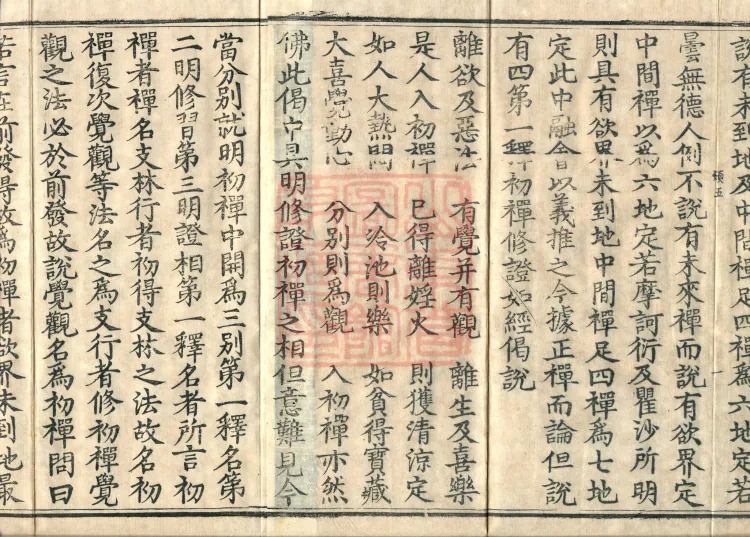 說有未到地及中間禪足四禪爲六地定若
曇無德人倒不說有未來禪而說有欲界定
中間禪以爲六地定若摩訶衍及瞿沙所明
則具有欲界未到地中間禪足四禪爲七地
定此中融會以義推之今據正禪而論但說
有四第一釋初禪修證如經偈說
離欲及惡法 有覺幷有觀 離生及喜樂
是人入初禪 已得離婬火 則獲清涼定
如人大熱悶 入冷池則樂 如貧得寶藏
大喜覺動心 分別則爲觀 入初禪亦然
佛此偈中具明修證初禪之相但意難見今
當分別就明初禪中開爲三別第一釋名第
二明修習第三明證相第一釋名者所言初
禪者禪名支林行者初得支林之法故名初
禪復次覺觀等法名之爲支行者修初禪覺
觀之法必於前發故說覺觀名爲初禪問曰
若言在前發得故爲初禪者欲界未到地最